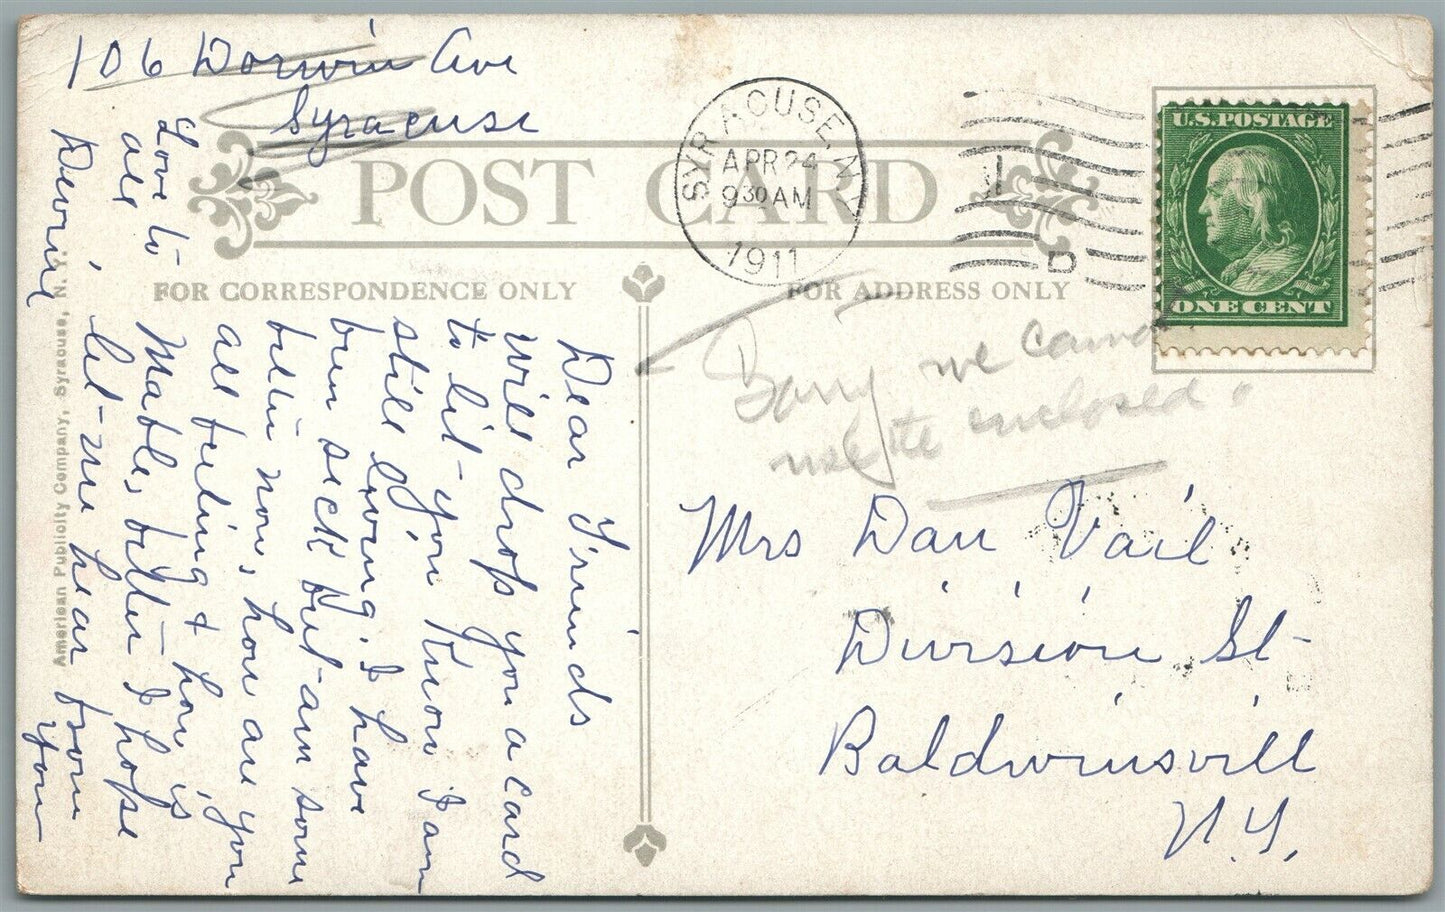 106 Dorwin Ave
Syracuse
POST CARD
FOR CORRESPONDENCE ONLY
FOR ADDRESS ONLY
SYRACUSE, N.Y.
APR 24
9 30 AM
1911
D
U.S. POSTAGE
ONE CENT
Sorry we cannot
use the enclosed.
Mrs Dan Vail
Division St
Baldwinsvill
N.Y.
Dear Friends
will drop you a card
to let you know I am
still living. I have
been sick but am some
better now, how are you
all feeling & how is
Mable, better I hope
let me hear from
you
Love to
all
American Publicity Company, Syracuse, N. Y.